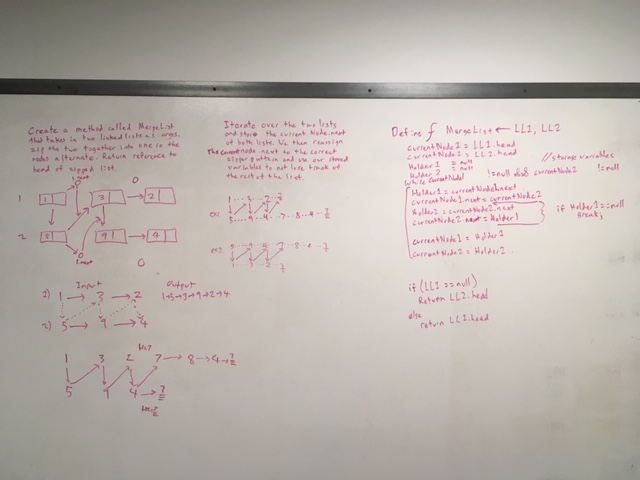 Create a method called MergeList
that takes in two linked lists as args.
zip the two together into one so the
nodes alternate. Return reference to
head of zipped list.
1
1
3
2
2
5
9
4
Input
Output
1) 1 → 3 → 2
1→5→3→9→2→4
2) 5 → 9 → 4
1 3 2 7 → 8 → 4 → 7
5 9 4 → 7
Iterate over the two lists
and store the current Node.next
of both lists. We then reassign
The current node next to the correct
zipper pattern and use our stored
variables to not lose track of
the rest of the list.
ex1
ex2
Define f MergeList ← LL1, LL2
currentNode1 = LL1.head
currentNode2 = LL2.head
Holder1 = null
Holder2 = null
//storage variables
while currentNode1 !=null && currentNode2 !=null
Holder1 = currentNode1.next
currentNode1.next = currentNode2
Holder2 = currentNode2.next
currentNode2.next = Holder1
if Holder1==null
Break;
currentNode1 = Holder1
currentNode2 = Holder2
if (LL1 == null)
Return LL2.head
else
return LL1.head